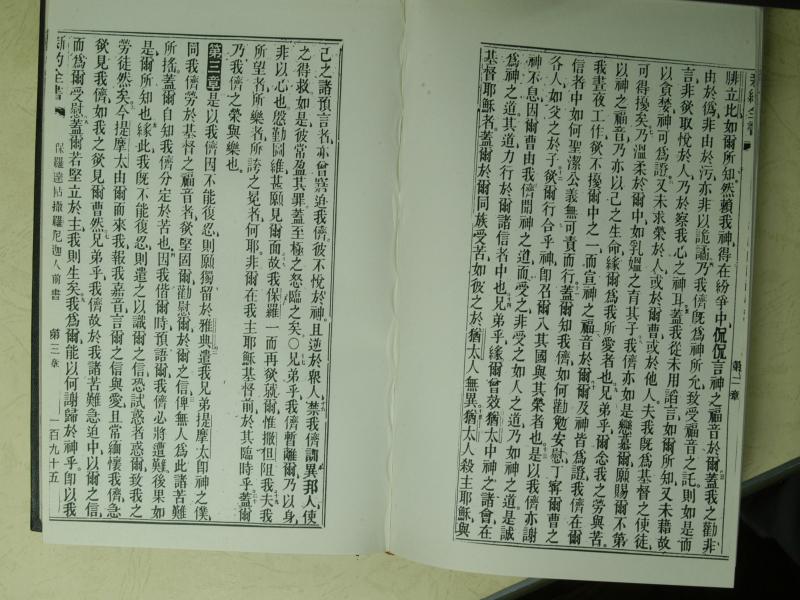 新約全書
第二章
腓立比如爾所知然賴我神得在紛爭中侃侃言神之福音於爾蓋我之勸非
由於僞非由於污亦非以詭譎乃我儕旣爲神所允致受福音之託則如是而
言非欲取悅於人乃於察我心之神耳蓋我從未用諂言如爾所知又未藉故
以貪婪神可爲證又未求榮於人或於爾曹或於他人夫我旣爲基督之使徒
可得擾矣乃溫柔於爾中如乳媼之育其子我儕亦如是戀慕爾願賜爾不第
以神之福音乃亦以己之生命緣爾爲我所愛者也兄弟乎爾念我之勞與苦
我晝夜工作欲不擾爾中之一而宣神之福音於爾爾及神皆爲證我儕在爾
信者中如何聖潔公義無可責而行蓋爾知我儕如何勸勉安慰丁寧爾曹之
各人如父之於子欲爾行合乎神卽召爾入其國與其榮者也是以我儕亦謝
神不息因爾曹由我儕聞神之道而受之非受如人之道乃如神之道是誠
爲神之道其道力行於爾諸信者中也兄弟乎緣爾曾效猶太中神之諸會在
基督耶穌者蓋爾於爾同族受苦如彼之於猶太人無異猶太人殺主耶穌與
己之諸預言者亦曾窘迫我儕彼不悅於神且逆於衆人禁我儕謂異邦人使
之得救如是彼常盈其罪蓋至極之怒臨之矣〇兄弟乎我儕暫離爾乃以身
非以心也慇勤圖維甚願見爾面故我保羅一而再欲就爾惟撒但阻我夫我
所望者所樂者所誇之冕者何耶非爾在我主耶穌基督前於其臨時乎蓋爾
乃我儕之榮與樂也
第三章 是以我儕因不能復忍則願獨留於雅典遣我兄弟提摩太卽神之僕
同我儕勞於基督之福音者欲堅固爾勸慰爾於爾之信俾無人爲此諸苦難
所搖蓋爾自知我儕分定於苦也因我偕爾時預語爾我儕必將遭難後果如
是爾所知也緣此我旣不能復忍則遣之以識爾之信恐試惑者惑爾致我之
勞徒然矣今提摩太由爾而來我報我嘉音言爾之信與愛且常緬懷我儕急
欲見我儕如我之欲見爾曹然兄弟乎我儕故於我諸苦難急迫中以爾之信
而爲爾受慰蓋爾若堅立於主我則生矣我爲爾能以何謝歸於神乎卽以我
新約全書
保羅達帖撒羅尼迦人前書
第三章
一百九十五